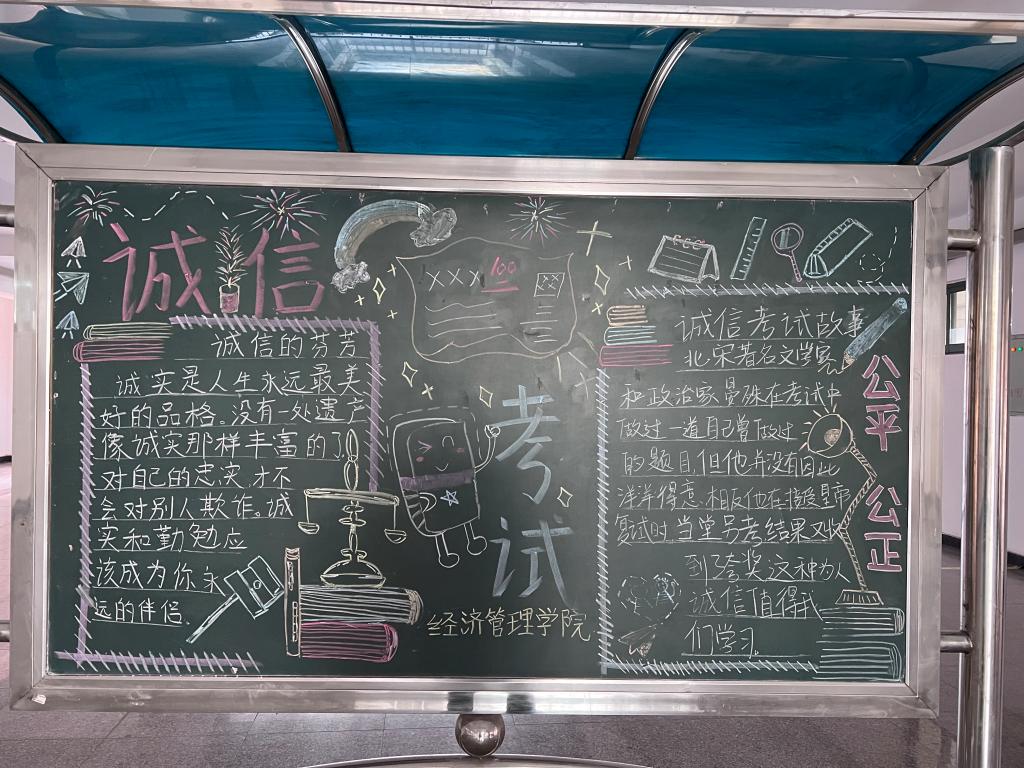 诚信
诚信的芬芳
诚实是人生永远最美
好的品格。没有一处遗产
像诚实那样丰富的了
对自己的忠实,才不
会对别人欺诈。诚
实和勤勉应
该成为你永
远的伴侣.
XXX 100
考试
经济管理学院
诚信考试故事
北宋著名文学家
和政治家晏殊在考试中
做过一道自己曾做过
的题目,但他并没有因此
洋洋得意.相反他在接受皇帝
复试时.当堂另考结果又收
到了夸奖这种为人
诚信值得我
们学习。
公平 公正